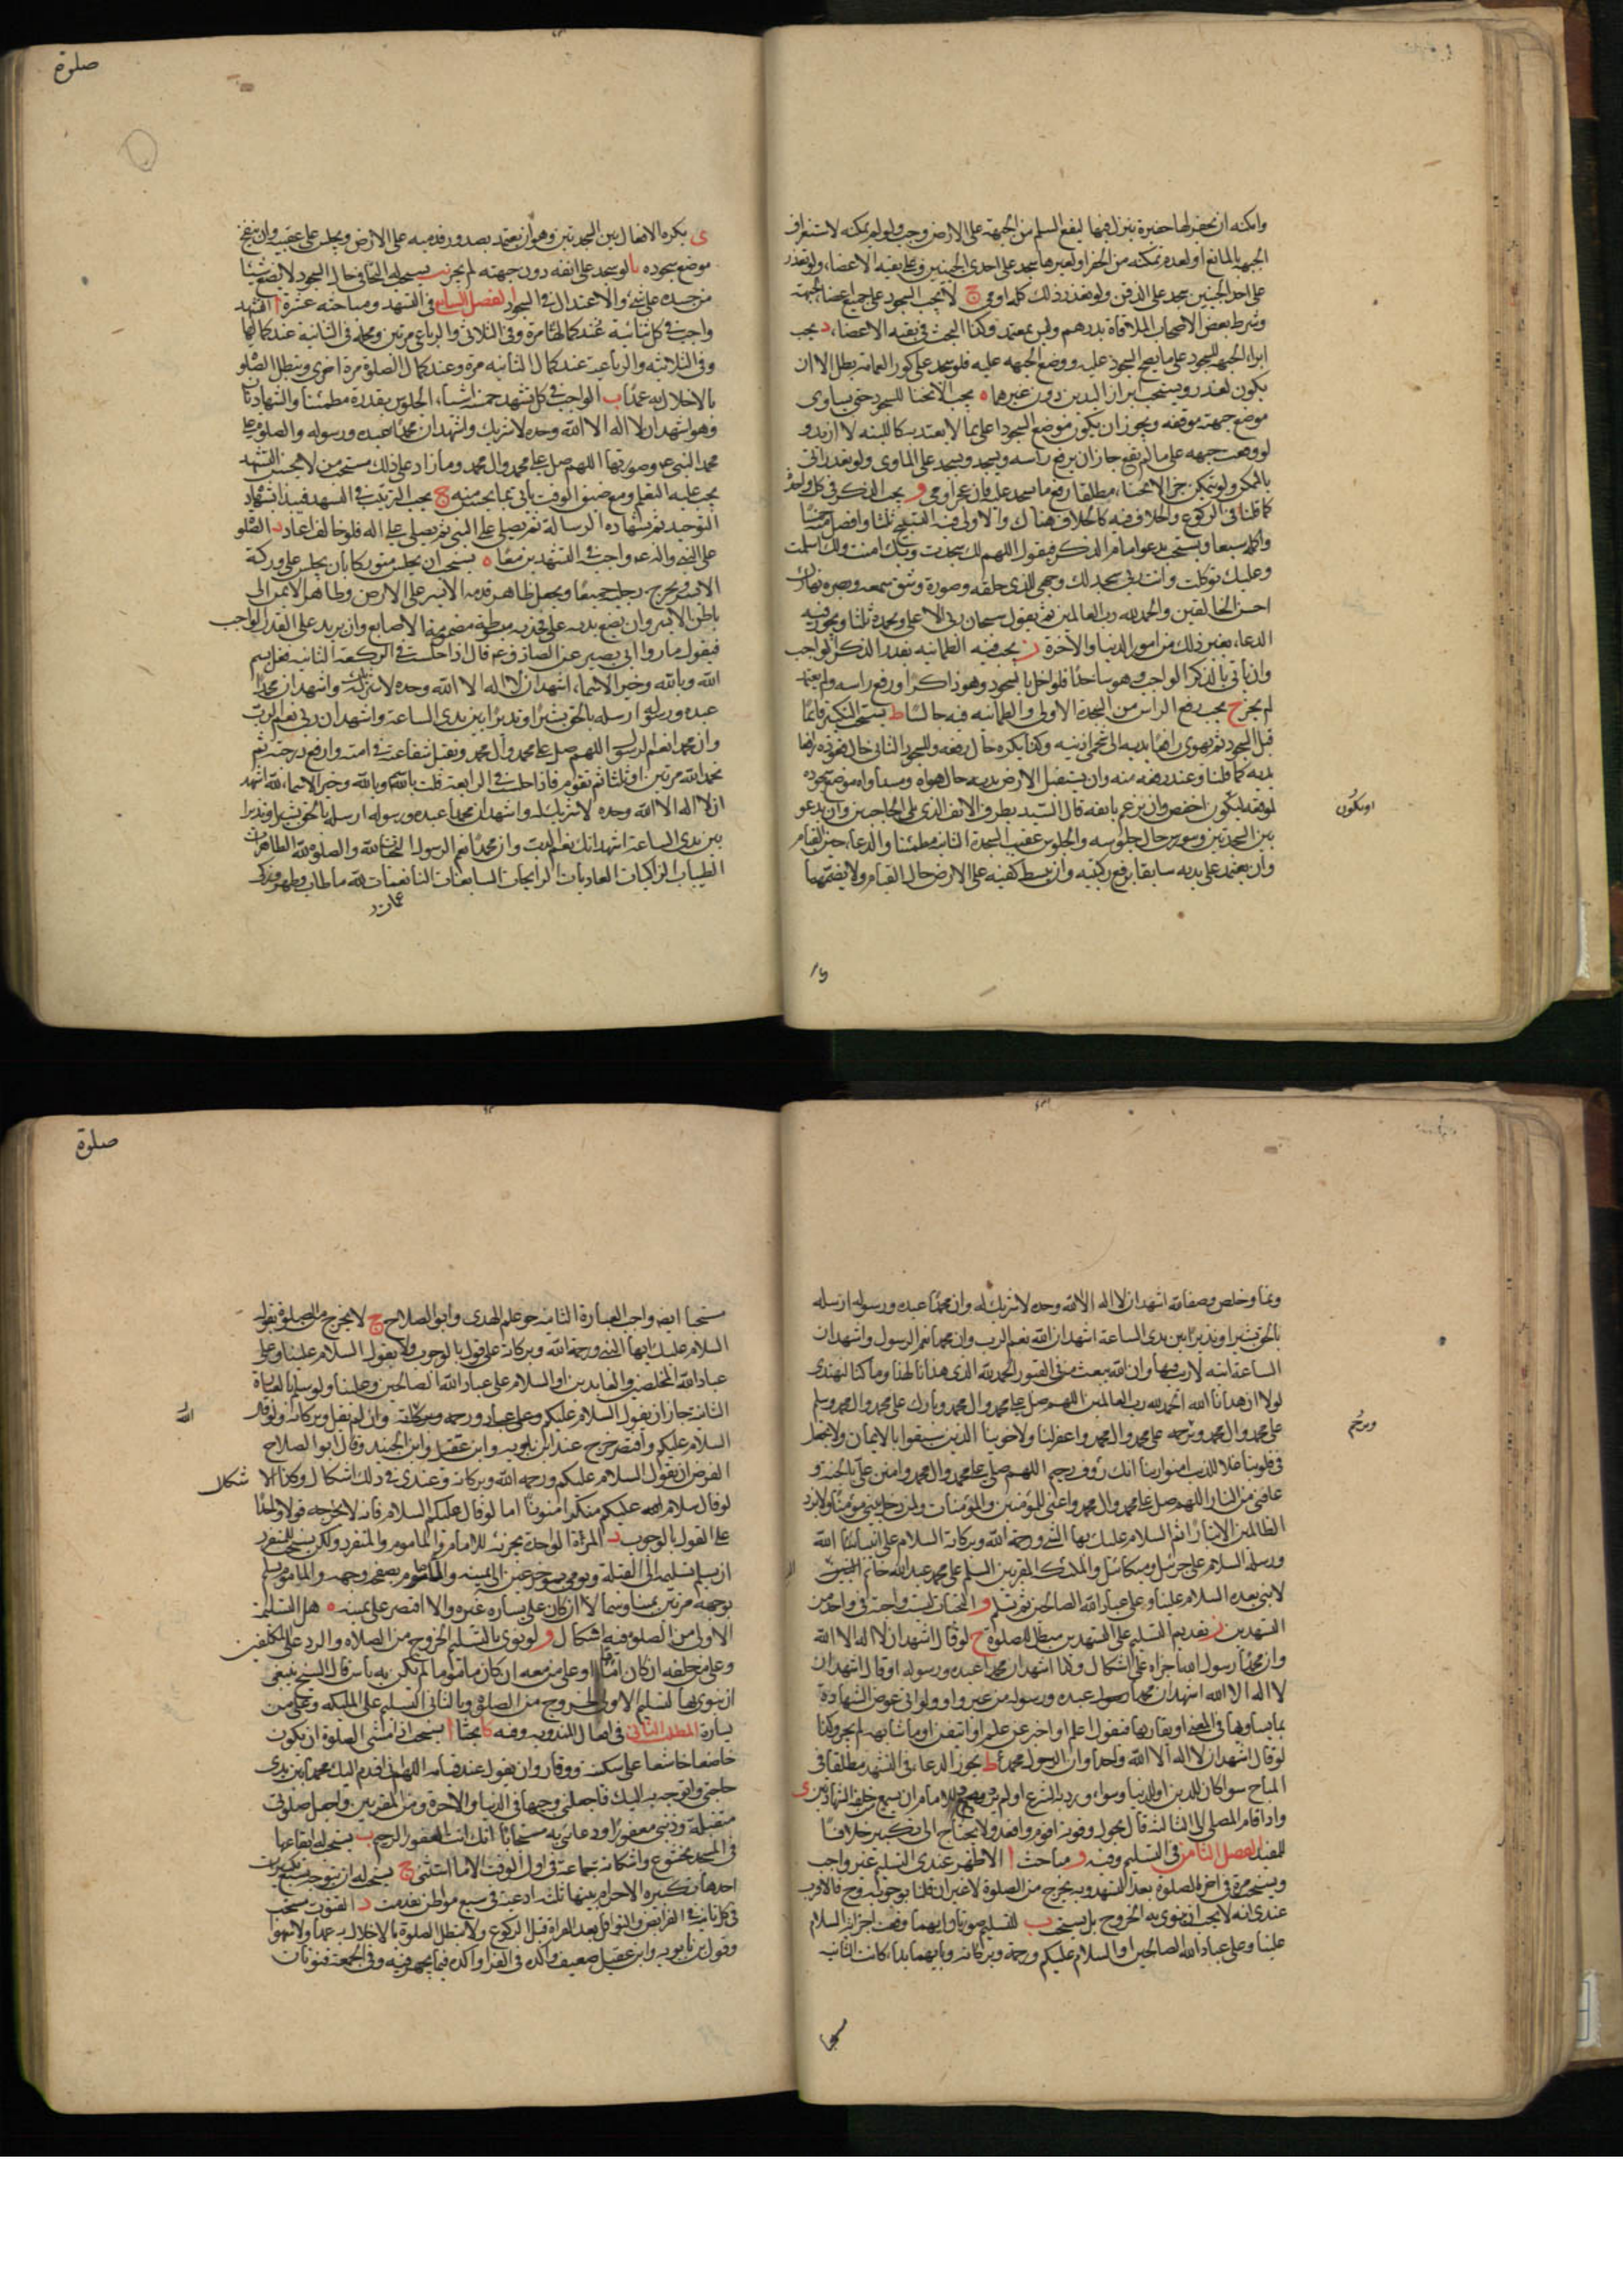 وامكنه ان يحفر لها حفيرة ينزل فيها ليقع السليم من الجبهة على الارض وجب ولو لم يمكنه لاستغراق
الجبهة بالمانع او لعدم تمكنه من الحفر او لغيرها سجد على احدى الجبينين وعلى بقية الاعضاء ولو تعذر
على احد الجبينين سجد على الذقن ولو تعذر ذلك كله اومى ج لا يجب السجود على جميع اعضاء الجبهة
وشرط بعض الاصحاب الملاقاة بدرهم وليس بمعتمد وكذا البحث في بقية الاعضاء د يجب
ابراز الجبهة للسجود على ما يصح السجود عليه ووضع الجبهة عليه فلو سجد على كور العمامة بطل الا ان
يكون لعذر ويستحب ابراز اليدين دون غيرهما ه يجب الانحناء للسجود حتى يساوى
موضع جبهته موقفه ويجوز ان يكون موضع السجود اعلى بما لا يعتد به كاللبنة لا ازيد و
لو وقعت جبهته على ما لم يقع جاز ان يرفع راسه ويسجد ويسجد على المساوى ولو تعذر اتى
بالممكن ولو لم يتمكن من الانحناء مطلقا رفع ما يسجد عليه فان عجز اومى و يجب الذكر في كل واحدة
كما قلنا في الركوع والخلاف فيه كالخلاف هناك والاولى فيه التسبيح ثلثا وافضل منه خمسا
واكمله سبعا ويستحب ان يدعو امام الذكر فيقول اللهم لك سجدت وبك امنت ولك اسلمت
وعليك توكلت وانت ربي سجد لك وجهي للذى خلقه وصوره وشق سمعه وبصره تبارك
احسن الخالقين والحمد لله رب العالمين ثم يقول سبحان ربي الاعلى وبحمده ثلثا ويجوز فيه
الدعاء بغير ذلك من امور الدنيا والاخرة ز يجب فيه الطمانينة بقدر الذكر الواجب
وان ياتى بالذكر الواجب وهو ساجد فلو اخل بالسجود وهو ذاكرا ورفع راسه ولم يتمه
لم يجز ح يجب رفع الراس من السجدة الاولى والطمانينة فيه جالسا ط يستحب التكبير قائما
قبل السجود ثم يهوى رافعا يديه الى شحمتي اذنيه وكذا يكره حال رفعه وللسجود الثاني حال قعوده رافعا
يديه كما قلنا وعند رفعه منه وان يستقبل الارض بيديه حال هواه ومساواة موضع سجوده
لموقفه ليكون اخفض وان يرغم بانفه قال السيد بطرف الانف الذى يلي الحاجبين وان يدعو
بين السجدتين ويسوى حال جلوسه والجلوس عقيب السجدة الثانية مطمئنا والدعاء حين القيام
وان يعتمد على يديه سابقا برفع ركبتيه وان يبسط كفيه على الارض حال القيام ولا يضمهما
او يكون
صلوة
ى يكره الاقعاء بين السجدتين وهو ان يعتمد بصدور قدميه على الارض ويجلس على عقبيه وان ينفخ
موضع سجوده يا لو سجد على انفه دون جبهته لم يجز يب يستحب له التجافى حال السجود لا يضع شيئا
من جسده على شئ والاعتدال في السجود الفصل السابع في التشهد ومباحثه عشرة ا التشهد
واجب في كل ثنائية عند كمالها مرة وفى الثلاثى والرباعي مرتين ومحله في الثنائية عند كمالها
وفى الثلاثية والرباعية عند كمال الثانية مرة وعند كمال الصلوة مرة اخرى وتبطل الصلوة
بالاخلال به عمدا ب الواجب في كل تشهد خمسة اشياء الجلوس بقدره مطمئنا والشهادتان
وهو اشهد ان لا اله الا الله وحده لا شريك واشهد ان محمدا عبده ورسوله والصلوة على
محمد النبي ع وصورتها اللهم صل على محمد وال محمد وما زاد على ذلك مستحب من لا يحسن التشهد
يجب عليه التعلم ومع ضيق الوقت ياتى بما يحسن منه ج يجب الترتيب في التشهد فيبدا بشهادة
التوحيد ثم بشهادة الرسالة ثم يصلي على النبي ثم يصلي على اله فلو خالف اعاد د الصلوة
على النبي واله ع واجب في التشهدين معا ه يستحب ان يجلس متوركا بان يجلس على وركه
الايسر ويخرج رجليه جميعا ويجعل ظاهر قدمه الايسر على الارض وظاهر الايمن الى
باطن الايسر وان يضع يديه على فخذيه مبسوطة مضمومة الاصابع وان يزيد على القدر الواجب
فيقول ما رواه ابي بصير عن الصادق ع قال اذا جلست في الركعة الثانية فقل بسم
الله وبالله وخير الاسماء اشهد ان لا اله الا الله وحده لا شريك له واشهد ان محمدا
عبده ورسوله ارسله بالحق بشيرا ونذيرا بين يدى الساعة واشهد ان ربي نعم الرب
وان محمدا نعم الرسول اللهم صل على محمد وال محمد وتقبل شفاعته في امته وارفع درجته ثم
تحمد الله مرتين او ثلثا ثم تقوم فاذا جلست في الرابعة قلت بسم الله وبالله وخير الاسماء لله اشهد
ان لا اله الا الله وحده لا شريك له واشهد ان محمدا عبده ورسوله ارسله بالحق بشيرا ونذيرا
بين يدى الساعة اشهد انك نعم الرب وان محمدا نعم الرسول التحيات لله والصلوة لله الطاهرات
الطيبات الزاكيات الغاديات الرايحات السابغات الناعمات لله ما طاب وطهر وزكى
ونما وخلص وصفا لله اشهد ان لا اله الا الله وحده لا شريك له وان محمدا عبده ورسوله ارسله
بالحق بشيرا ونذيرا بين يدى الساعة اشهد ان الله نعم الرب وان محمدا نعم الرسول واشهد ان
الساعة اتية لا ريب فيها وان الله يبعث من في القبور الحمد لله الذى هدانا لهذا وما كنا لنهتدى
لولا ان هدانا الله الحمد لله رب العالمين اللهم صل على محمد وال محمد وبارك على محمد وال محمد وسلم
على محمد وال محمد وترحم على محمد وال محمد واغفر لنا ولاخوننا الذين سبقونا بالايمان ولا تجعل
في قلوبنا غلا للذين امنوا ربنا انك رؤف رحيم اللهم صل على محمد وال محمد وامنن على بالجنة و
عافنى من النار اللهم صل على محمد وال محمد واغفر للمؤمنين والمؤمنات ولمن دخل بيتي مؤمنا ولا تزد
الظالمين الا تبارا ثم السلام عليك ايها النبي ورحمة الله وبركاته السلام على انبياء الله
ورسله السلام على جبرئيل وميكائيل والملئكة المقربين السلم على محمد بن عبد الله خاتم النبيين
لا نبي بعده السلام علينا وعلى عباد الله الصالحين ثم تسلم و التحيات ليست واجبة في واحد من
التشهدين ز تقديم التسليم على التشهد مبطل للصلوة ح لو قال اشهد ان لا اله الا الله
وان محمدا رسول الله اجزاه على اشكال وكذا اشهد ان محمدا عبده ورسوله او قال اشهد ان
لا اله الا الله اشهد ان محمدا رسوله عبده ورسوله من غير واو ولو اتى عوض الشهادة
بما يساويها في المعنى او يقاربها فيقول اعلم او اخبر عن علم او اتيقن او ما شابهه لم يجز وكذا
لو قال اشهد ان لا اله الا الله واحد وان الرسول محمد ط يجوز الدعاء في التشهد مطلقا في
المباح سوا كان للدين او للدنيا وسواء ورد به الشرع او لم يرد للامام ان يسمع من خلفه الشهادتين ى
واذا قام المصلى الى الثالثة قال بحول الله وقوته اقوم واقعد ولا يحتاج الى تكبير خلافا
للمفيد الفصل الثامن في التسليم وفيه و مباحث ا الاظهر عندى التسليم غير واجب
ويستحب مرة في اخر الصلوة بعد التشهد وبه يخرج من الصلوة لا غير ان قلنا بوجوبه وح فالاقرب
عندى انه لا يجب ان ينوى به الخروج بل يستحب ب للتسليم صورتان وايهما وقعت اجزات السلام
علينا وعلى عباد الله الصالحين او السلام عليكم ورحمة وبركاته وبايهما بدا كانت الثانية
وترحم
صلوة
مستحبا ايضا واجب العبارة الثانية هو علم الهدى وابو الصلاح ج لا يخرج من الصلوة بقوله
السلام عليك ايها النبي ورحمة الله وبركاته على قول بالوجوب ولا بقول السلام علينا وعلى
عباد الله المخلصين والعابدين او السلام على عباد الله الصالحين وعلينا ولو سلم بالعبارة
الثانية جاز ان يقول السلام عليكم وعلى عباد ورحمه وبركاته وان لم يقل وبركاته ولو قال
السلام عليكم واقتصر خرج عند ابن بابويه وابن عقيل وابن الجنيد وقال ابو الصلاح
الفرض ان تقول السلام عليكم ورحمه الله وبركاته وعندى في ذلك اشكال وكذا الا شكال
لو قال سلام الله عليكم منكرا منونا اما لو قال عليكم السلام فانه لا يخرجه قولا واحدا
على القول بالوجوب د المراة الواحدة يجزئه للامام والماموم والمنفرد ولكن يستحب للمنفرد
ان يسلم تسليمة الى القبلة ويومى بمؤخر عينه الى يمينه والامام بصفحة وجهه والماموم يسلم
بوجهه مرتين يمينا وشمالا ان كان على يساره غيره والا اقتصر على يمينه ه هل التسليمة
الاولى من الصلوة فيه اشكال و لو نوى بالتسليم الخروج من الصلاه والرد على المكلفين
وعلى من خلفه ان كان اماما او على من معه ان كان ماموما لم يكن به باس قال الشيخ ينبغي
ان ينوى بها لتسليم الاولى الخروج من الصلوة وبالثاني التسليم على الملئكة وعلى من
يساره المطلب الثاني في افعال المندوبة وفيه كا بحثا ا يستحب اذا مشى الى الصلوة ان يكون
خاضعا خاشعا على سكينة ووقار وان يقول عند قيامه اللهم اني اقدم اليك محمدا بين يدى
حاجتي واتوجه به اليك فاجعلني وجيها في الدنيا والاخرة ومن المقربين واجعل صلوتي
متقبلة وذنبي مغفورا ودعائي به مستجابا انك انت الغفور الرحيم ب يستحب له ايقاعها
في المسجد بخشوع واستكانة جماعة في اول الوقت الا ما استثني ج يستحب له ان يتوجه بسبع تكبيرات
احدها تكبيره الاحرام بينها ثلثة ادعية في سبع مواطن تقدمت د القنوت مستحب
في كل ثانية في الفرايض والنوافل بعد القراءة قبل الركوع ولا تبطل الصلوة بالاخلال به عمدا ولا سهوا
وقول ابن بابويه وابن عقيل ضعيف واكده في الفرا واكده فيما يجهر فيه وفى الجمعة قنوتان
الله